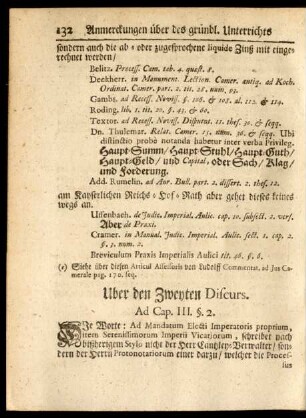 132 Anmerckungen über des gründl. Unterrichts
sondern auch die ab- oder zugesprochene liquide Zinß mit einge-
rechnet werden/
Belitz. Process. Cam. tab. 4. quæst. 8.
Deckherr. in Monument. Lection. Camer. antiq. ad Koch.
Ordinat. Camer. part. 2. tit. 28. num. 93.
Gambs. ad Recess. Noviss. §. 108. & 101. al. 112. & 114.
Roding. lib. 1. tit. 20. §. 41. & 60.
Textor. ad Recess. Noviss. Disputat. 11. thes. 30. & seqq.
Dn. Thulemar. Relat. Camer. 15. num. 36. & seqq. Ubi
distinctio probè notanda habetur inter verba Privileg.
Haupt-Summ/ Haupt-Stuhl/ Haupt-Guth/
Haupt-Geld/ und Capital, oder Sach/ Klag/
und Forderung.
Add. Rumelin. ad Aur. Bull. part. 2. dissert. 2. thes. 12.
am Kayserlichen Reichs-Hof-Rath aber gehet dieses keines
wegs an.
Uffenbach. de Judic. Imperial. Aulic. cap. 10. subsect. 2. verf.
Aber de Praxi.
Cramer. in Manual. Judic. Imperial. Aulic. sect. 1. cap. 2.
§. 3. num. 2.
Breviculum Praxis Imperialis Aulici tit. 28. §. 8.
(e) Siehe über diesen Articul Assessoris von Ludolff Commentat. ad Jus Ca-
merale pag. 170. seq.
Uber den Zweyten Discurs.
Ad Cap. III. §. 2.
Die Worte: Ad Mandatum Electi Imperatoris proprium,
item Serenissimorum Imperii Vicariorum, schreibet nach
bißherigem Stylo nicht der Herr Cantzley-Verwalter/ son-
dern der Herrn Protonotariorum einer darzu/ welcher die Proces-
sus